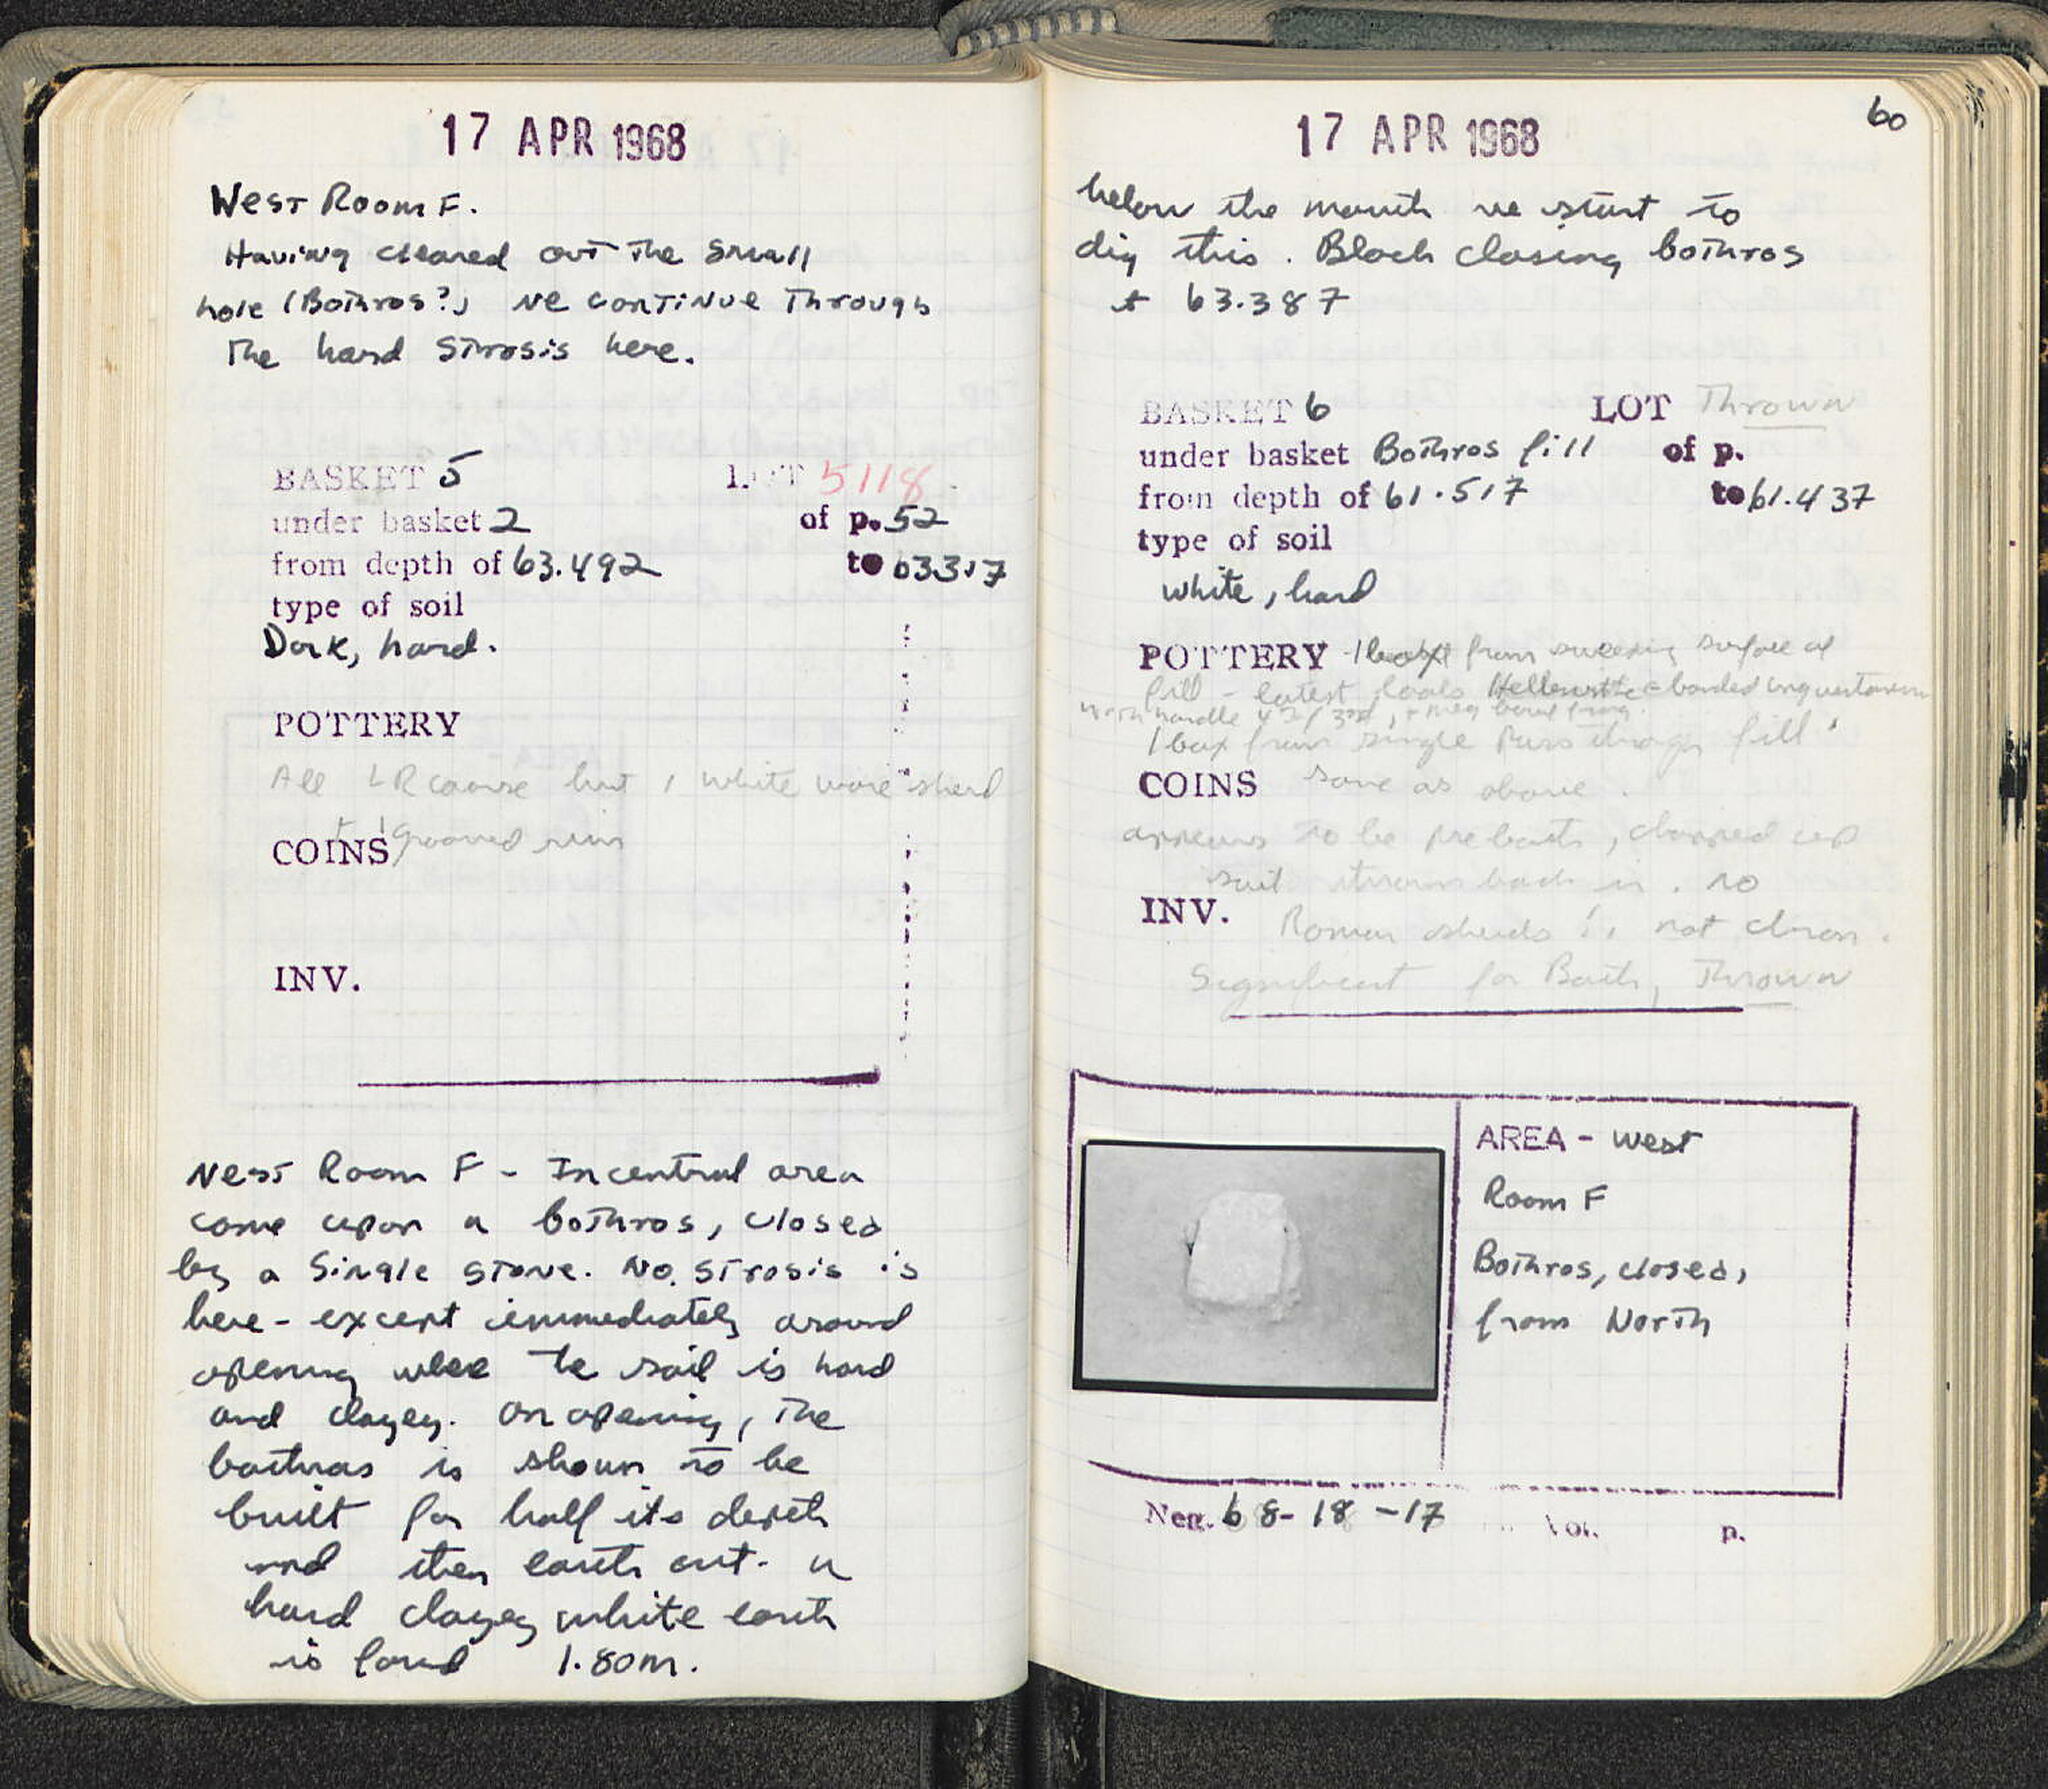 17 APR 1968
West Room F.
Having cleared out the small
hole (Bothros?) we continue through
the hard strosis here.
BASKET 5 LOT 5118
under basket 2 of p. 52
from depth of 63.492 to 63317
type of soil
Dark, hard.
POTTERY
All LR coarse but 1 white ware sherd
+ 1 grooved rim
COINS
INV.
West Room F - In central area
come upon a bothros, closed
by a single stone. No strosis is
here - except immediately around
opening where the soil is hard
and clayey. On opening, the
bothros is shown to be
built for half its depth
and then earth cut. a
hard clayey white earth
is found 1.80m.
60
17 APR 1968
below the mouth we start to
dig this. Block closing bothros
+ 63.387
BASKET 6 LOT Thrown
under basket Bothros fill of p.
from depth of 61.517 to 61.437
type of soil
white, hard
POTTERY - 1 box from sweeping surface of
fill - latest looks Hellenistic - banded unguentarium
with handle 4th/3rd, + meg bowl frag.
1 box from single pass through fill
COINS same as above.
appears to be pre bath, chopped up
soil thrown back in. no
INV. Roman sherds ∴ not chron.
Significant for Bath, Thrown
AREA - West
Room F
Bothros, closed,
from North
Neg. 68-18-17 Vol. p.